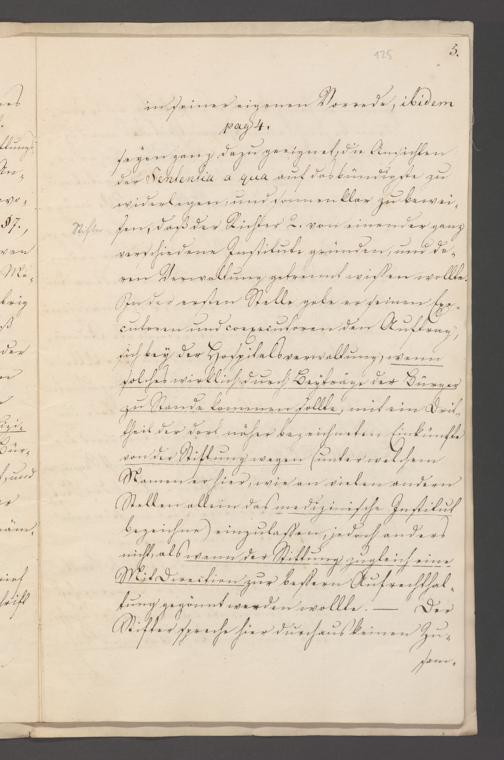 125
5.
in seiner eigenen Vorrede, ibidem
pag 4.
seyen ganz dazu geeignet, die Ansichten
der Sententia a qua auf das bündigste zu
widerlegen, und sonnenklar zu bewei-
sen, daß der Stifter 2. von einander ganz
Stifter
verschiedene Institute gründen, und de-
ren Verwaltung getrennt wissen wollte.
In der ersten Stelle gebe er seinen Exe-
cutoren und coexecutoren den Auftrag,
sich bey der Hospitalsverwaltung, wenn
solches wirklich durch Beyträge der Bürger
zu Stande kommen sollte, mit ein Drit-
theil der dort näher bezeichneten Einkünfte
von der Stiftung wegen (unter welchem
Namen er hier, wie an vielen andern
Stellen allein das medizinische Institut
bezeichne) einzulassen, jedoch anders
nicht, als wenn der Stiftung zugleich eine
Mit-Direction zur bessern Aufrechthal-
tung gegönnt werden wollte. — Der
Stifter spreche hier durchaus keinen Zu-
sam-